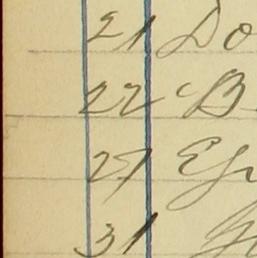 21 Do
22 "B
27 Ey
31